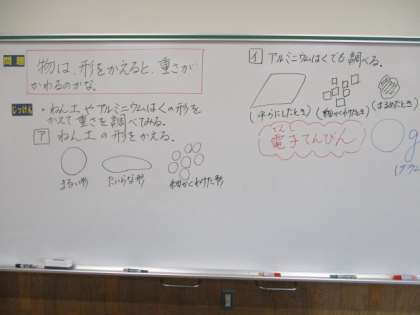 問題
物は、形をかえると、重さが
かわるのかな。
じっけん
・ねん土やアルミニウムはくの形を
かえて重さを調べてみる。
ア ねん土の形をかえる。
まるい形
たいらな形
細かくわけた形
イ アルミニウムはくでも調べる。
(平らにしたとき)
(細かくわけたとき)
(まるめたとき)
でんし
電子てんびん
g
(グラム